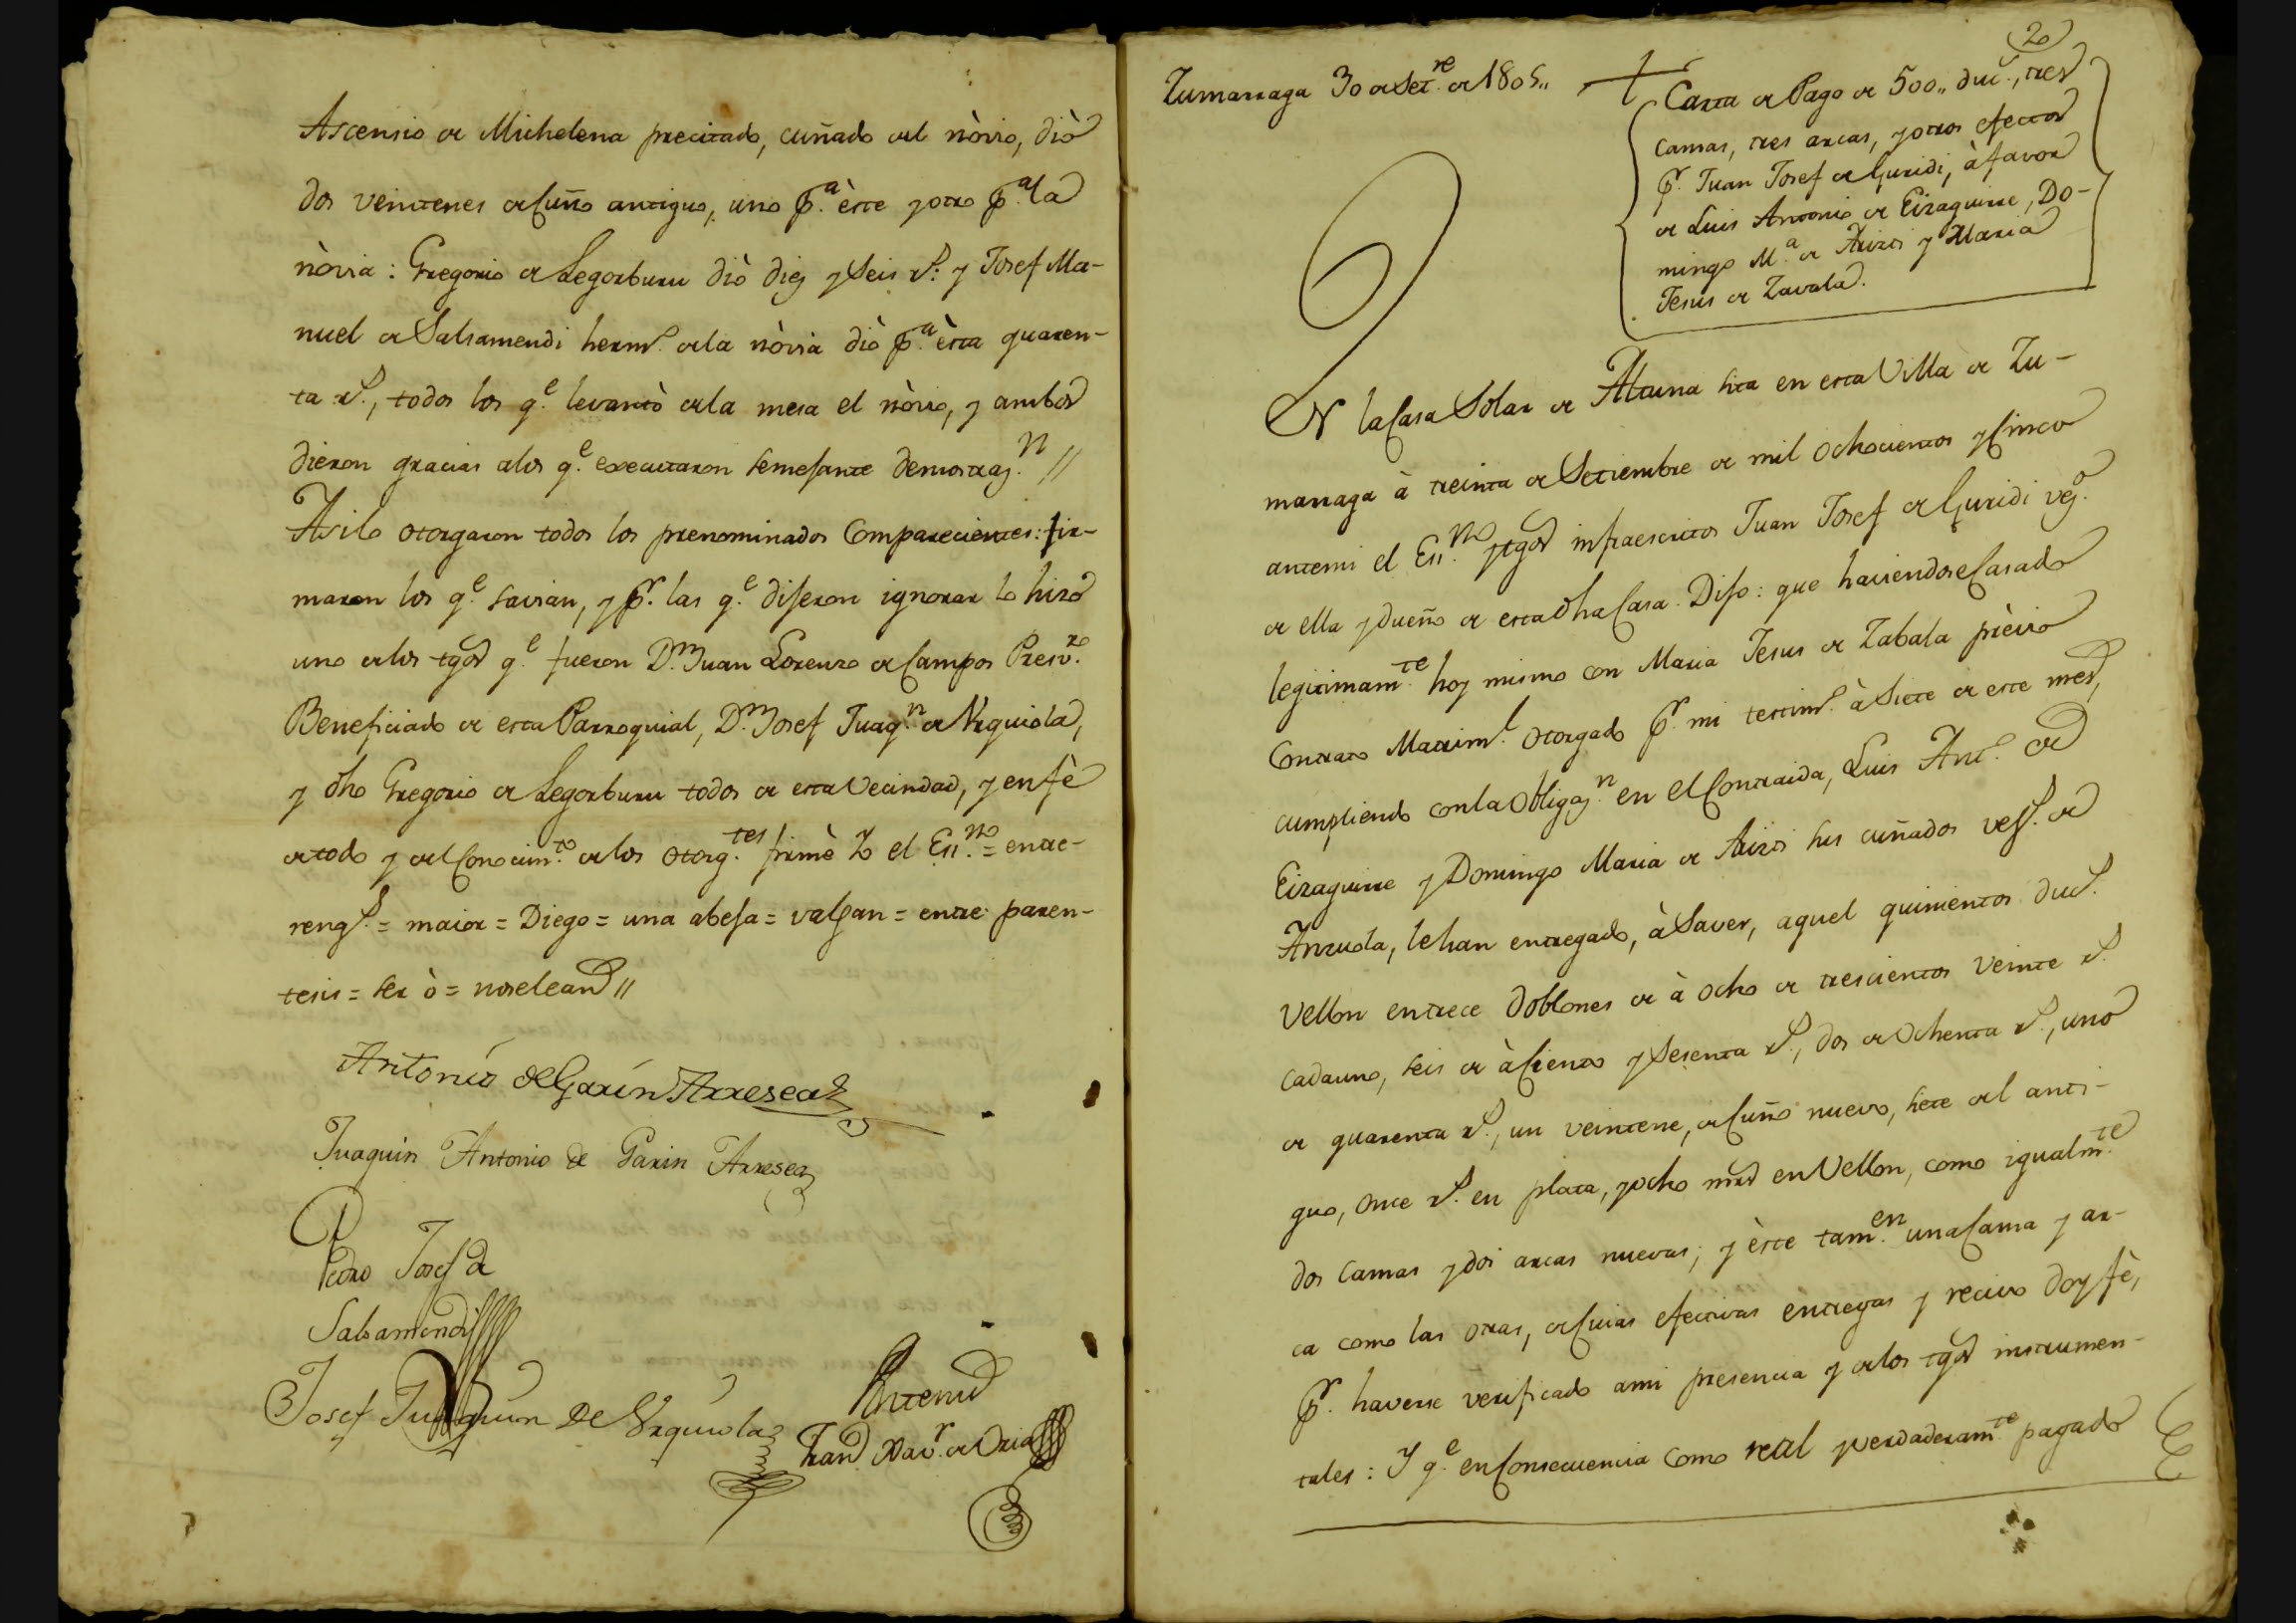 Ascensio de Michelena precitado, cuñado del nòvio, diò
dos veintenes de Cuño antiguo, uno p.ª èste y otro p.ª la
nòvia: Gregorio de Legorburu diò diez y Seis r.s: y Josef Ma-
nuel de Salsamendi herm.o de la nòvia diò p.ª èsta quaren-
ta r.s, todos los q.e levantò de la mesa el nòvio, y ambos
dieron gracias a los q.e executaron semejante demostraz.n //
Asi lo otorgaron todos los prenominados Comparecientes: fir-
maron los q.e savian, y p.r las q.e dijeron ignorar lo hizo
uno de los tgos q.e fueron D.n Juan Lorenzo de Campos Presv.ro
Beneficiado de esta Parroquial, D.n Josef Juaq.n de Urquiola,
y dho Gregorio de Legorburu todos de esta Vecindad, y en fè
de todo y del Conocim.to de los otorg.tes firmè Yo el Ess.no = entre-
reng.s = maior = Diego = una abeja = valgan = entre paren-
tesis = ser ò = no se lean //
Antonio de Garin Arreseaz
Juaquin Antonio de Garin Arreseaz
Pedro Josef de
Salsamendi
Josef Juaquin de Urquiola
Antemi
Fran.co Xav.r de Oria
20
Zumarraga 30 de Set.re de 1805,,
Carta de Pago de 500,, duc.s, tres
camas, tres arcas, y otros efectos
p.r Juan Josef de Guridi, à favor
de Luis Antonio de Eizaguirre, Do-
mingo M.ª de Arizti y Maria
Jesus de Zavala.
EN la Casa Solar de Altuna sita en esta Villa de Zu-
marraga à treinta de Setiembre de mil ochocientos y Cinco
antemi el Ess.no y tgos infraescritos Juan Josef de Guridi vez.o
de ella y dueño de esta dha Casa. Dijo: que haviendose Casado
legitimam.te hoy mismo con Maria Jesus de Zabala prèvio
Contrato Matrim.l otorgado p.r mi testim.o à Siete de este mes,
cumpliendo con la obligaz.n en el Contraida, Luis Ant.o de
Eizaguirre y Domingo Maria de Arizti sus cuñados vez.s de
Anzuola, le han entregado, à Saver, aquel quinientos duc.s
Vellon en trece doblones de à ocho de trescientos veinte r.s
cada uno, seis de à Ciento y Sesenta r.s, dos de Ochenta r.s, uno
de quarenta r.s, un veintene, de Cuño nuevo, siete del anti-
guo, once r.s en plata, y ocho mrs en Vellon, como igualm.te
dos camas y dos arcas nuevas; y èste tam.en una Cama y ar-
ca como las otras, de Cuias efectivas entregas y recivo doy fè,
p.r haverse verificado a mi presencia y de los tgos instrumen-
tales: Y q.e en Consecuencia como real y verdaderam.te pagado